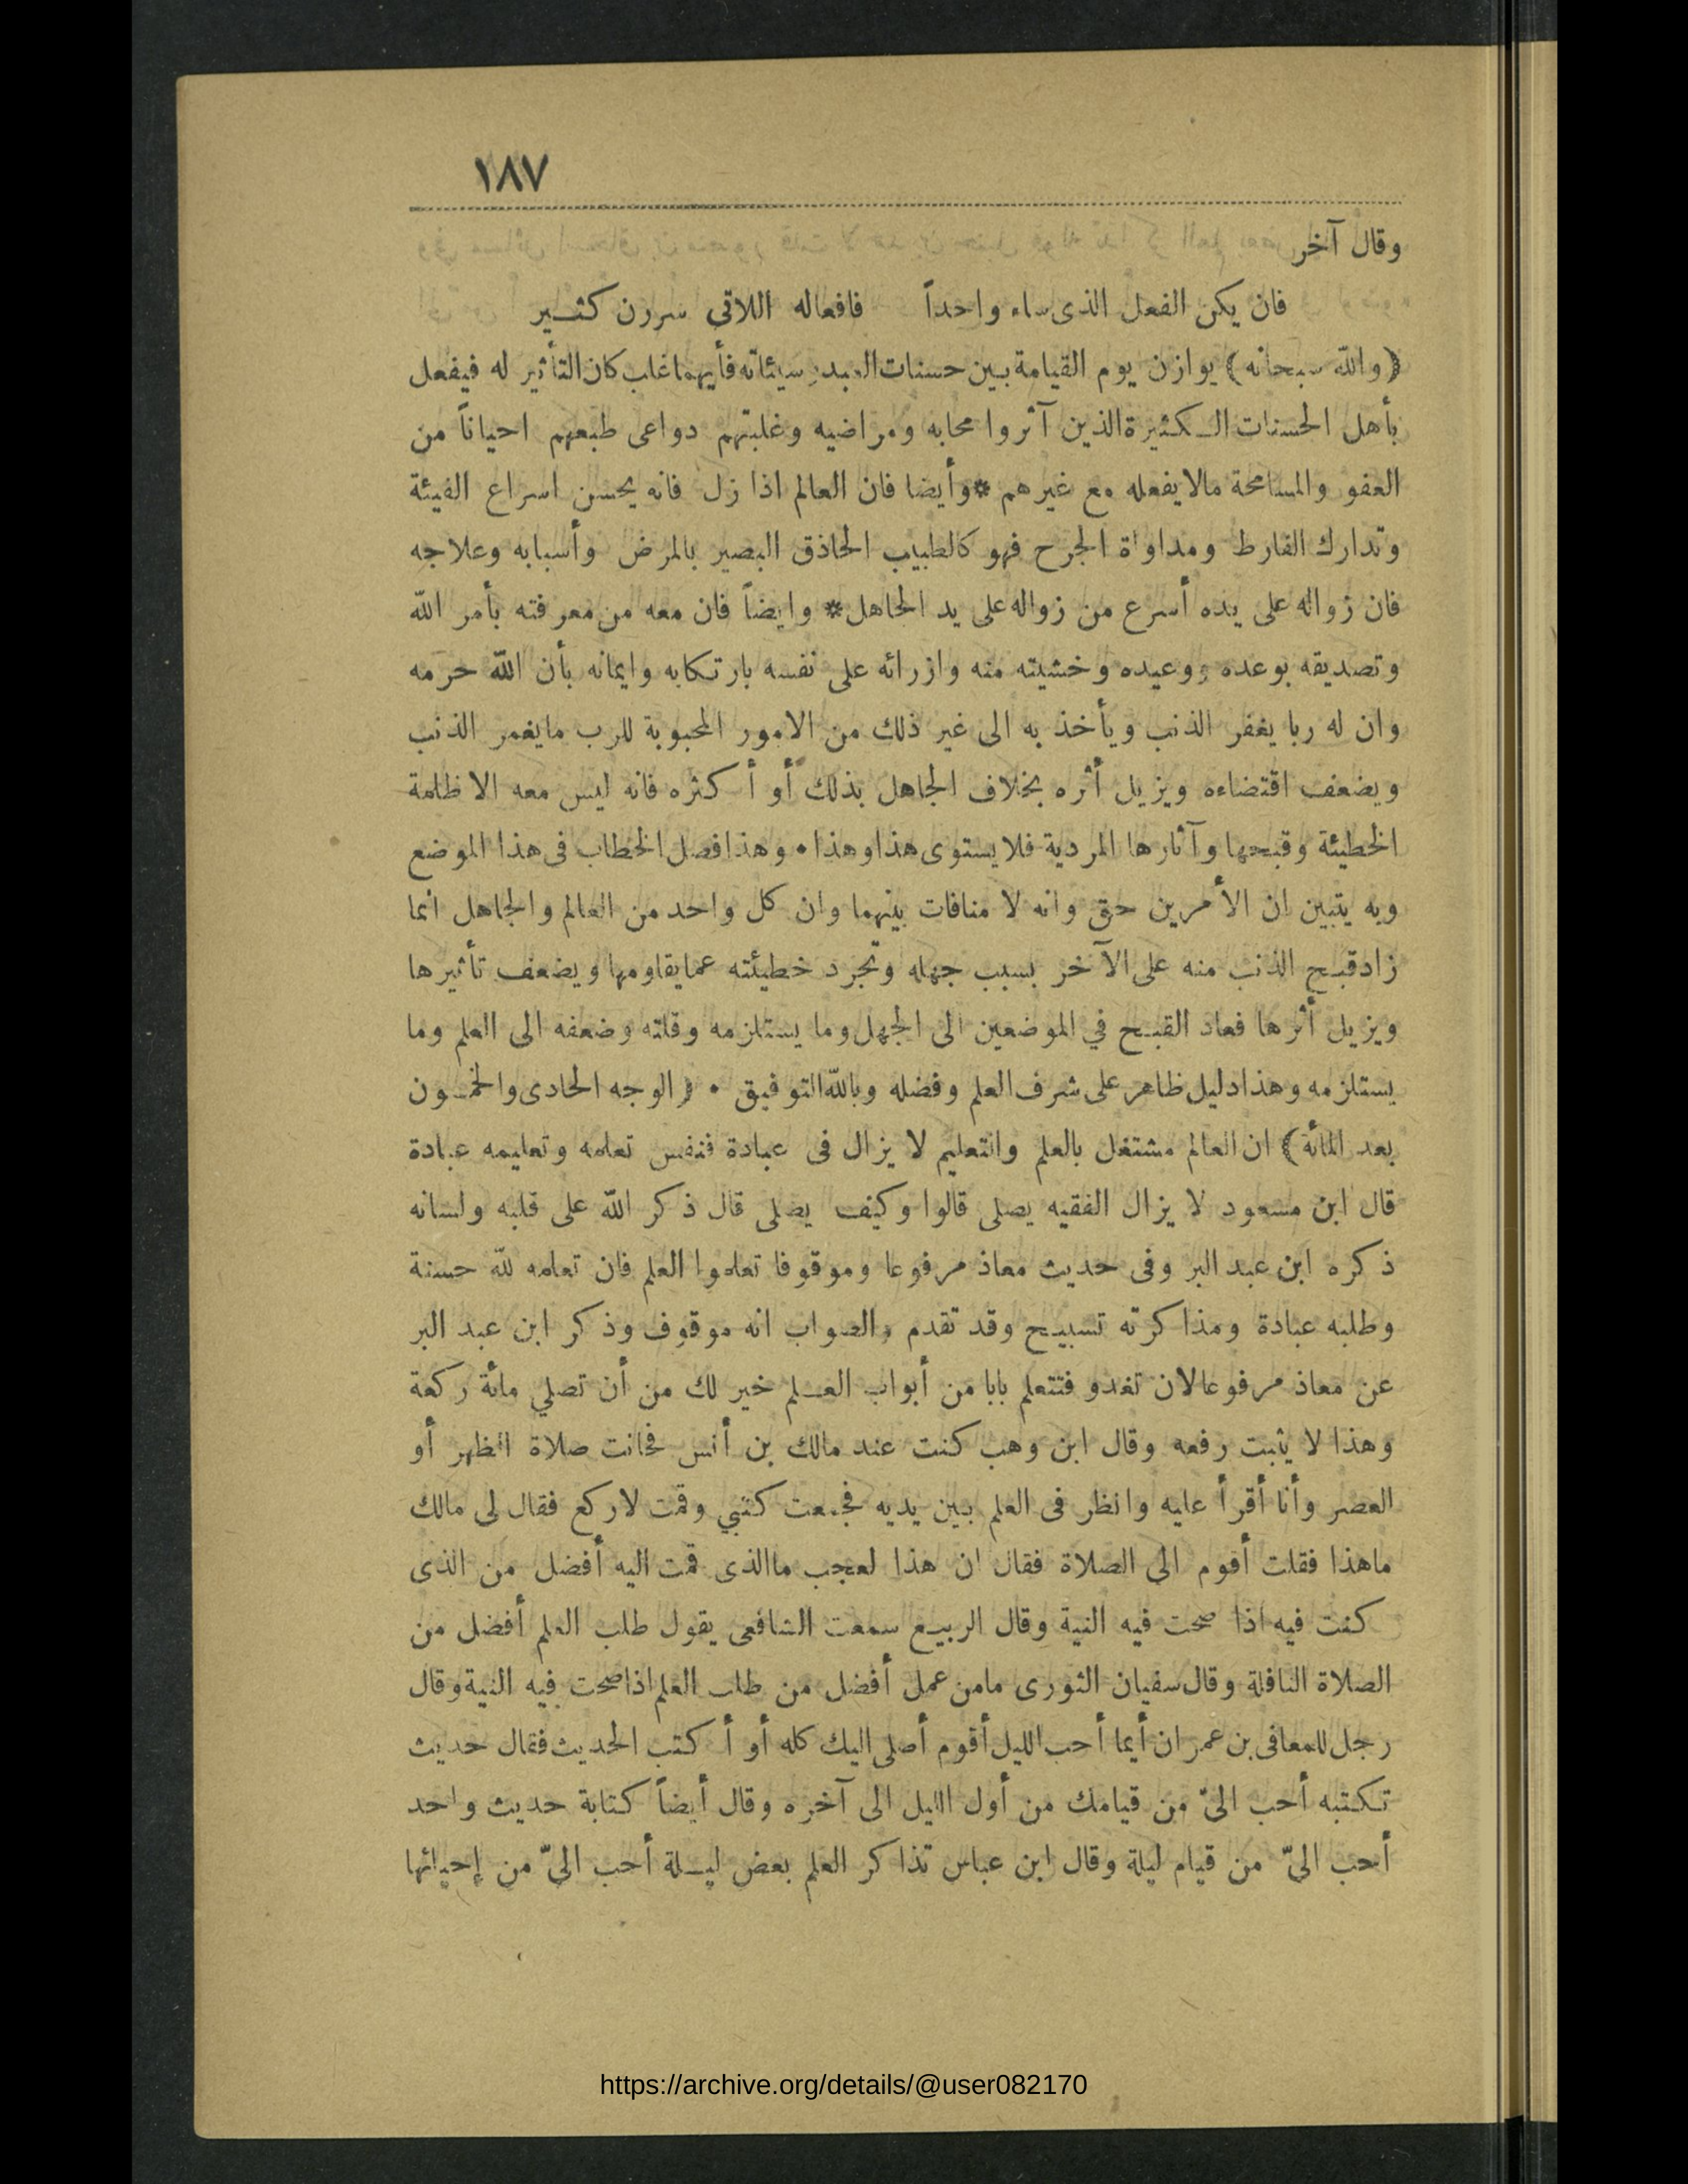 ١٨٧
وقال آخر
فان يكن الفعل الذى ساء واحداً فافعاله اللاتي سررن كثير
(والله سبحانه) يوازن يوم القيامة بين حسنات العبد وسيئاته فأيهما غلب كان التأثير له فيفعل
بأهل الحسنات الكثيرة الذين آثروا محابه ومراضيه وغلبتهم دواعى طبعهم احياناً من
العفو والمسامحة مالا يفعله مع غيرهم * وأيضا فان العالم اذا زل فانه يحسن اسراع الفيئة
وتدارك الفارط ومداواة الجرح فهو كالطبيب الحاذق البصير بالمرض وأسبابه وعلاجه
فان زواله على يده أسرع من زواله على يد الجاهل * وايضاً فان معه من معرفته بأمر الله
وتصديقه بوعده ووعيده وخشيته منه وازرائه على نفسه بارتكابه وايمانه بأن الله حرمه
وان له ربا يغفر الذنب ويأخذ به الى غير ذلك من الامور المحبوبة للرب مايغمر الذنب
ويضعف اقتضاءه ويزيل أثره بخلاف الجاهل بذلك أو أكثره فانه ليس معه الا ظلمة
الخطيئة وقبحها وآثارها المردية فلا يستوى هذا وهذا • وهذا فصل الخطاب فى هذا الموضع
وبه يتبين ان الأمرين حق وانه لا منافات بينهما وان كل واحد من العالم والجاهل انما
زاد قبح الذنب منه على الآخر بسبب جهله وتجرد خطيئته عما يقاومها ويضعف تأثيرها
ويزيل أثرها فعاد القبح في الموضعين الى الجهل وما يستلزمه وقلته وضعفه الى العلم وما
يستلزمه وهذا دليل ظاهر على شرف العلم وفضله وبالله التوفيق • (الوجه الحادى والخمسون
بعد المائة) ان العالم مشتغل بالعلم والتعليم لا يزال فى عبادة فنفس تعلمه وتعليمه عبادة
قال ابن مسعود لا يزال الفقيه يصلى قالوا وكيف يصلى قال ذكر الله على قلبه ولسانه
ذكره ابن عبد البر وفى حديث معاذ مرفوعا وموقوفا تعلموا العلم فان تعلمه لله حسنة
وطلبه عبادة ومذاكرته تسبيح وقد تقدم والصواب انه موقوف وذكر ابن عبد البر
عن معاذ مرفوعا لان تغدو فتتعلم بابا من أبواب العلم خير لك من أن تصلي مائة ركعة
وهذا لا يثبت رفعه وقال ابن وهب كنت عند مالك بن أنس فحانت صلاة الظهر أو
العصر وأنا أقرأ عليه وانظر فى العلم بين يديه فجمعت كتبي وقمت لاركع فقال لى مالك
ماهذا فقلت أقوم الى الصلاة فقال ان هذا لعجب ماالذى قمت اليه أفضل من الذى
كنت فيه اذا صحت فيه النية وقال الربيع سمعت الشافعى يقول طلب العلم أفضل من
الصلاة النافلة وقال سفيان الثورى مامن عمل أفضل من طلب العلم اذا صحت فيه النية وقال
رجل للمعافى بن عمران أيما أحب الليل أقوم أصلى اليك كله أو أكتب الحديث فقال حديث
تكتبه أحب الىّ من قيامك من أول الليل الى آخره وقال أيضاً كتابة حديث واحد
أحب الىّ من قيام ليلة وقال ابن عباس تذاكر العلم بعض ليلة أحب الىّ من إحيائها
https://archive.org/details/@user082170